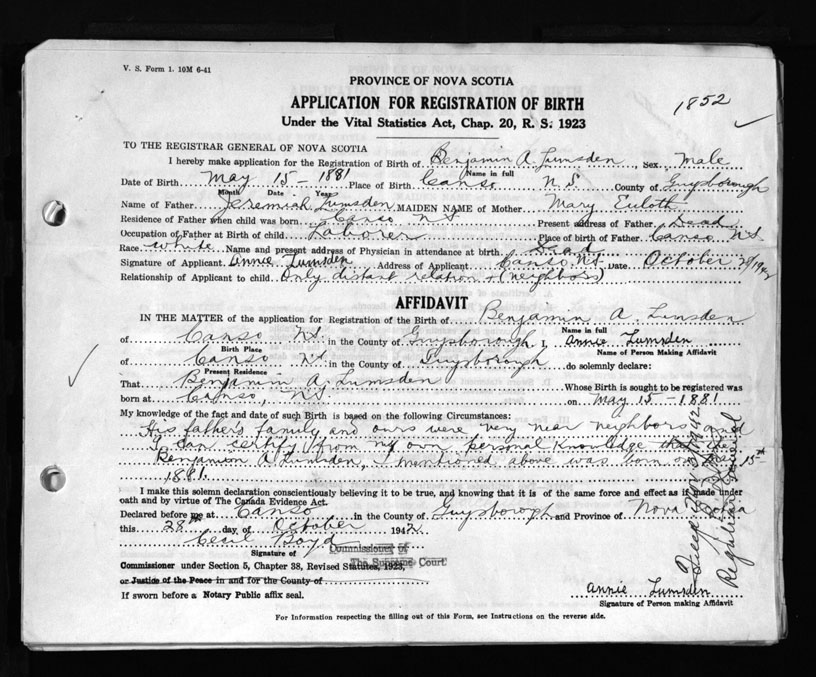 V. S. Form 1. 10M 6-41
PROVINCE OF NOVA SCOTIA
APPLICATION FOR REGISTRATION OF BIRTH
1852
Under the Vital Statistics Act, Chap. 20, R. S. 1923
TO THE REGISTRAR GENERAL OF NOVA SCOTIA
I hereby make application for the Registration of Birth of Benjamin A. Lumsden, Sex Male
Name in full
Date of Birth May 15 - 1881 Place of Birth Canso N.S. County of Guysborough
Month Date Year
Name of Father Jeremiah Lumsden MAIDEN NAME of Mother Mary Euloth
Residence of Father when child was born Canso N.S. Present address of Father Dead
Occupation of Father at Birth of child Laborer Place of birth of Father Canso N.S.
Race white Name and present address of Physician in attendance at birth Dead
Signature of Applicant Annie Lumsden Address of Applicant Canso, N.S. Date October 28/1942
Relationship of Applicant to child Only distant relation (neighbors)
AFFIDAVIT
IN THE MATTER of the application for Registration of the Birth of Benjamin A. Lumsden
Name in full
of Canso N.S. in the County of Guysborough I, Annie Lumsden
Birth Place Name of Person Making Affidavit
of Canso N.S. in the County of Guysborough do solemnly declare:
Present Residence
That Benjamin A. Lumsden Whose Birth is sought to be registered was
born at Canso, N.S. on May 15 - 1881
My knowledge of the fact and date of such Birth is based on the following Circumstances:
His father's family and ours were very near neighbors and
I can certify from my own personal knowledge that
Benjamin A. Lumsden, mentioned above was born on 15th
1881.
I make this solemn declaration conscientiously believing it to be true, and knowing that it is of the same force and effect as if made under
oath and by virtue of The Canada Evidence Act.
Declared before me at Canso in the County of Guysborogh and Province of Nova Scotia
this 28th day of October 1942
Cecil Boyd
Signature of Commissioner of
The Supreme Court
Commissioner under Section 5, Chapter 38, Revised Statutes, 1923,
or Justice of the Peace in and for the County of
Annie Lumsden
If sworn before a Notary Public affix seal.
Signature of Person making Affidavit
For Information respecting the filling out of this Form, see Instructions on the reverse side.
Nov 3/1942
Registrar General